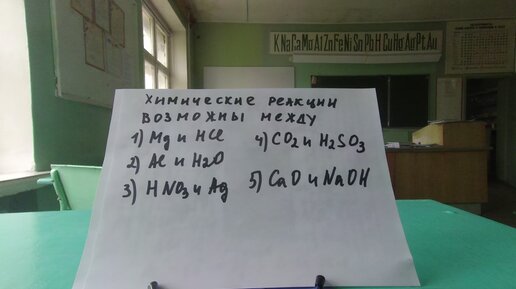 K Na Ca Mg Al Zn Fe Ni Sn Pb H Cu Hg Ag Pt Au
ХИМИЧЕСКИЕ РЕАКЦИИ
ВОЗМОЖНЫ МЕЖДУ
1) Mg и HCl
2) Al и H2O
3) HNO3 и Ag
4) CO2 и H2SO3
5) CaO и NaOH